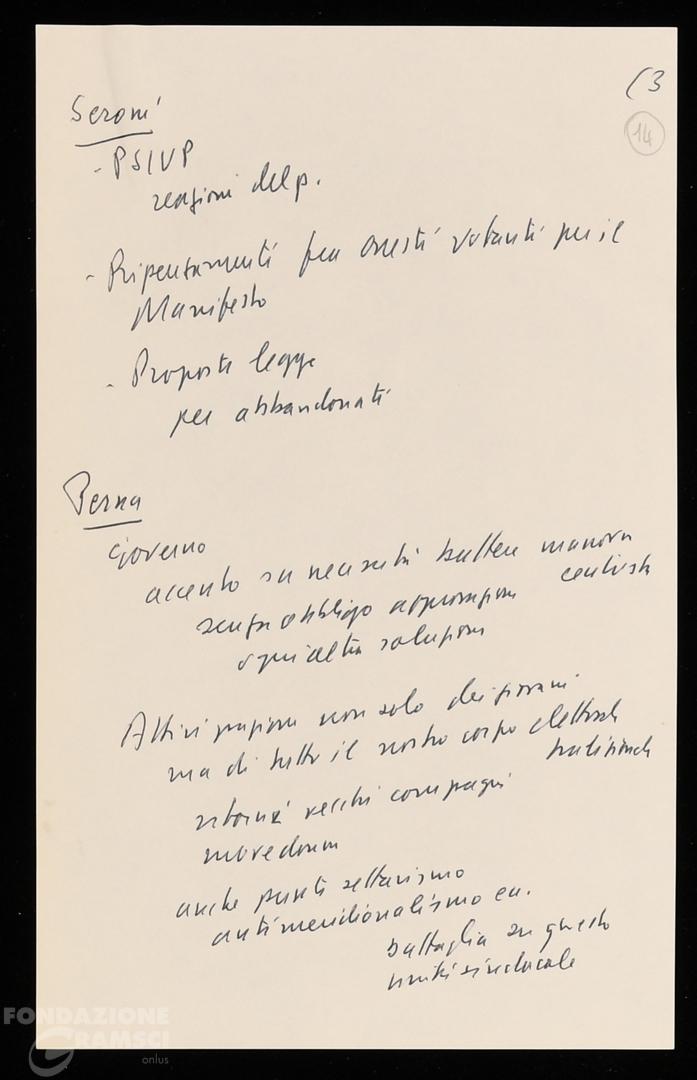 (3
14
Seroni
- PSIUP
reazioni del p.
- Ripensamenti fra onesti votanti per il
Manifesto
- Proposta legge
per abbandonati
Perna
Governo
accento su necessità battere manovra
centrista
senza obbligo approvazione
ogni altra soluzione
Attivizzazione non solo dei giovani
ma di tutto il nostro corpo elettorale
tradizionale
ritorni vecchi compagni
anche punte settarismo
antimeridionalismo ecc.
battaglia su questo
unità sindacale
FONDAZIONE
GRAMSCI
onlus